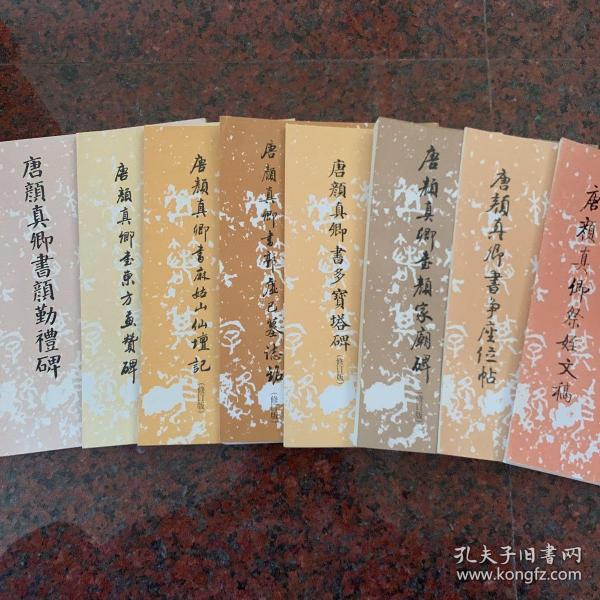 唐顏真卿書顏勤禮碑
唐顏真卿書東方画贊碑
唐顏真卿書麻姑山仙壇記
(修訂版)
唐顏真卿書郭虛己墓誌銘
(修訂版)
唐顏真卿書多寶塔碑
(修訂版)
唐顏真卿書顏家廟碑
(修訂版)
唐顏真卿書爭座位帖
唐顏真卿祭姪文稿
孔夫子旧书网
www.kongfz.com